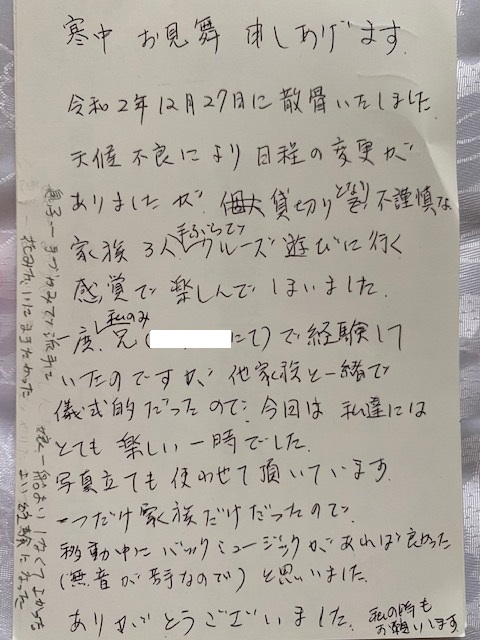 寒中 お見舞 申しあげます.
令和2年12月27日に散骨いたしました.
天候不良により日程の変更が
ありましたが. 貸切りとなり 不謹慎な
家族3人 手ぶらで クルーズ遊びに行く
感覚で楽しんでしまいました.
一度 私のみ 兄( にて)で経験して
いたのですが 他家族と一緒で
儀式的だったので. 今回は 私達には
とても 楽しい 一時でした.
写真立ても 使わせて 頂いています.
一つだけ 家族だけだったので
移動中に バックミュージックが あれば 良かった
(無音が苦手なので) と思いました.
ありがとうございました. 私の時も
お願いします
息子.. 一手づかみで派手に
娘 一船よいしなくてよかった
よい経験になった